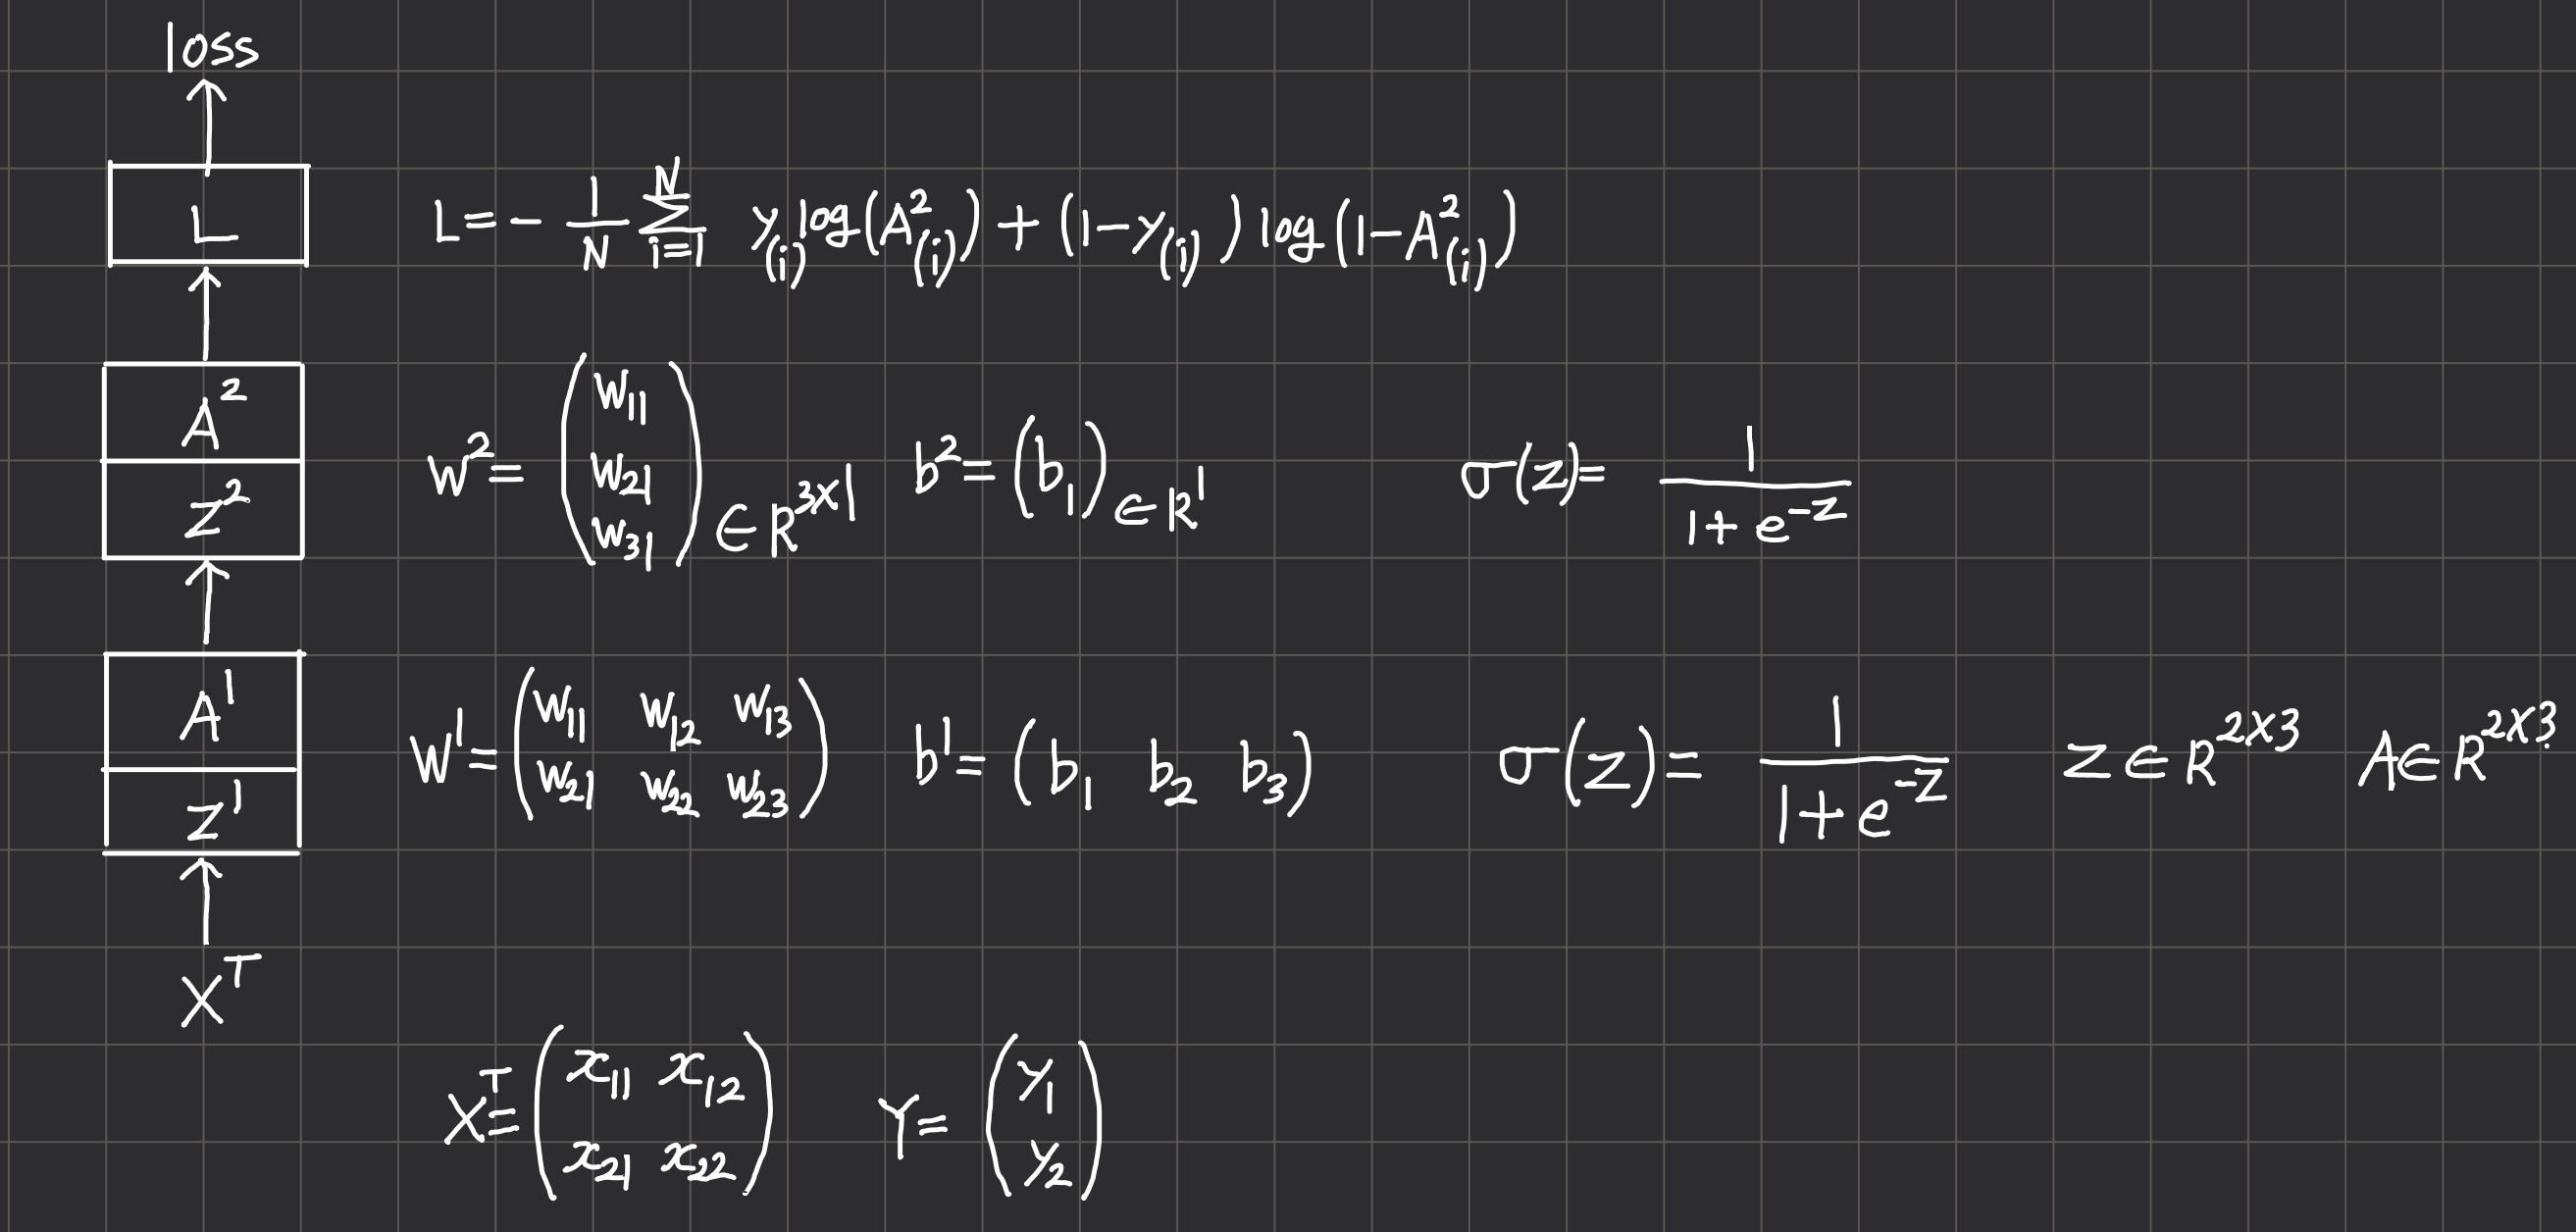 loss
L
L = - 1/N Σ_{i=1}^{N} y_(i) log(A²_(i)) + (1-y_(i)) log(1-A²_(i))
A²
Z²
W² = (w₁₁ w₂₁ w₃₁) ∈ R^{3×1} b² = (b₁) ∈ R¹ σ(z) = 1/(1+e^{-z})
A¹
Z¹
W¹ = (w₁₁ w₁₂ w₁₃
w₂₁ w₂₂ w₂₃) b¹ = (b₁ b₂ b₃) σ(z) = 1/(1+e^{-z}) Z ∈ R^{2×3} A ∈ R^{2×3}
X^T
X^T = (x₁₁ x₁₂
x₂₁ x₂₂) Y = (y₁
y₂)